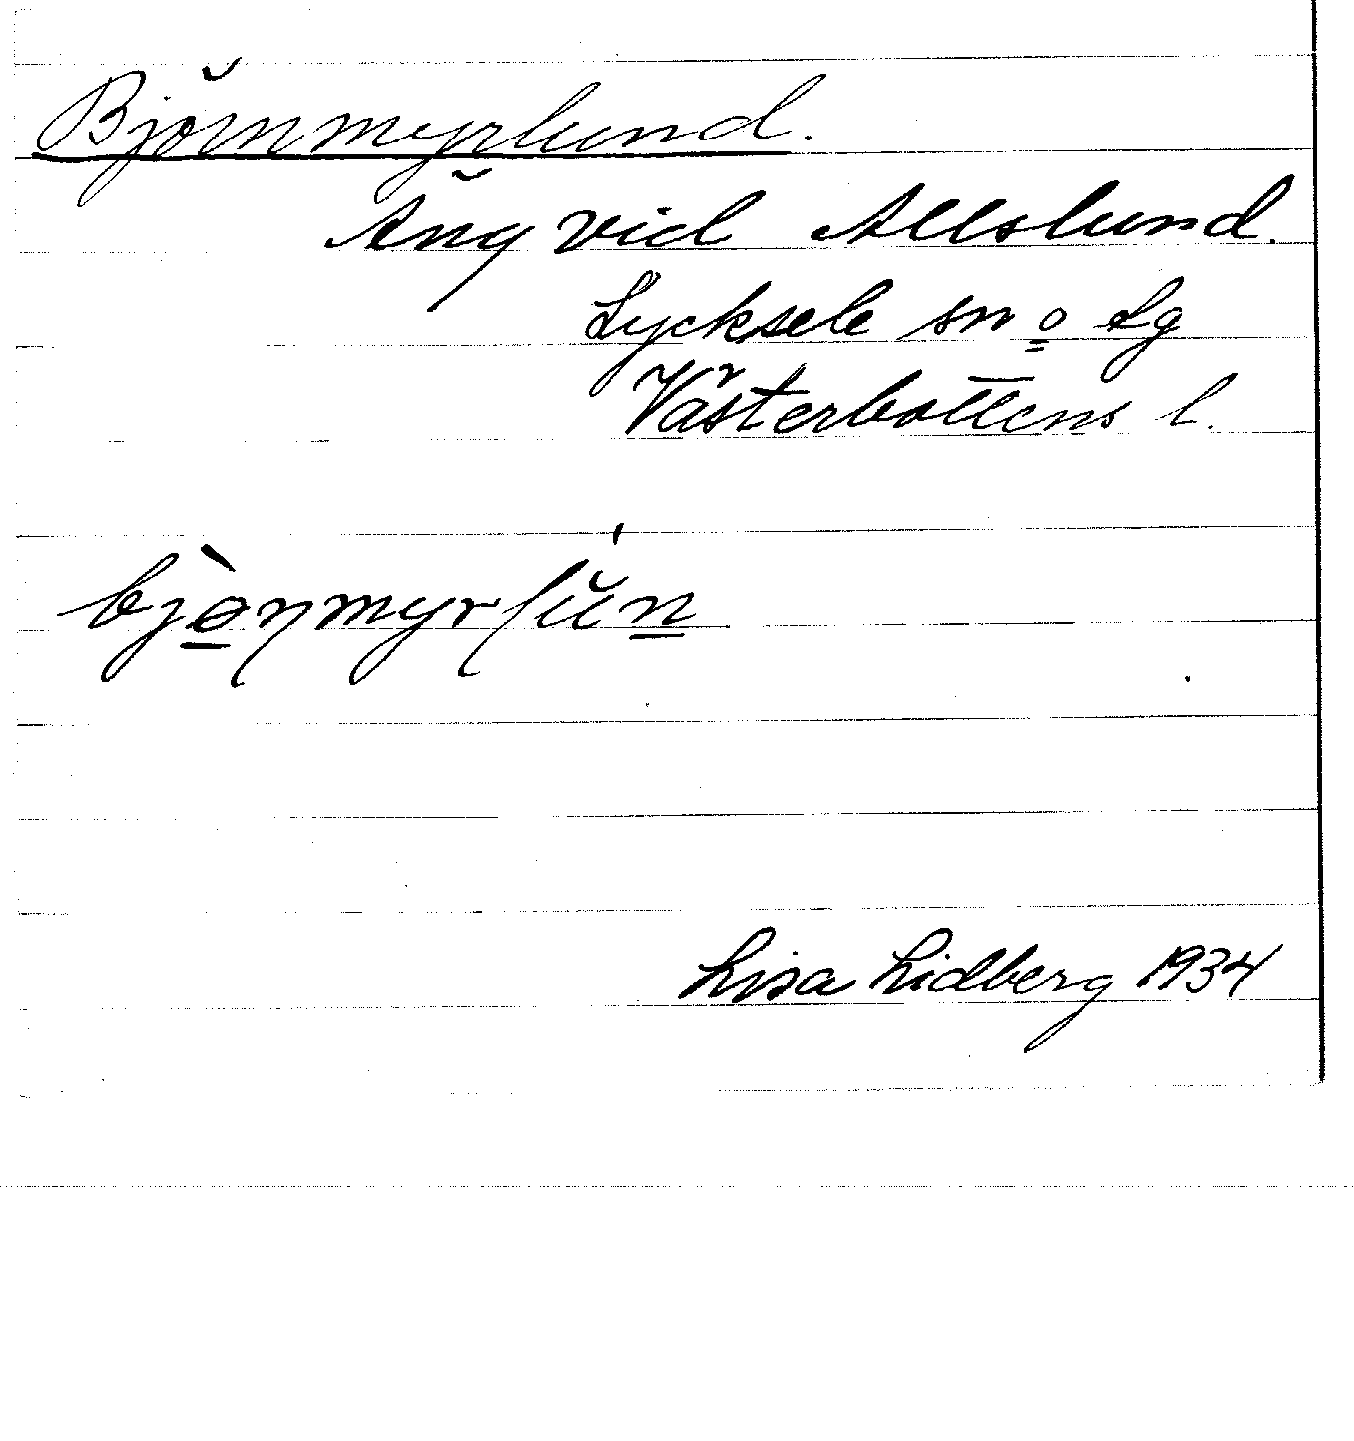 Björnmyrlund.
Äng vid Allslund.
Lycksele sn o Lg
Västerbottens l.
Lisa Lidberg 1934